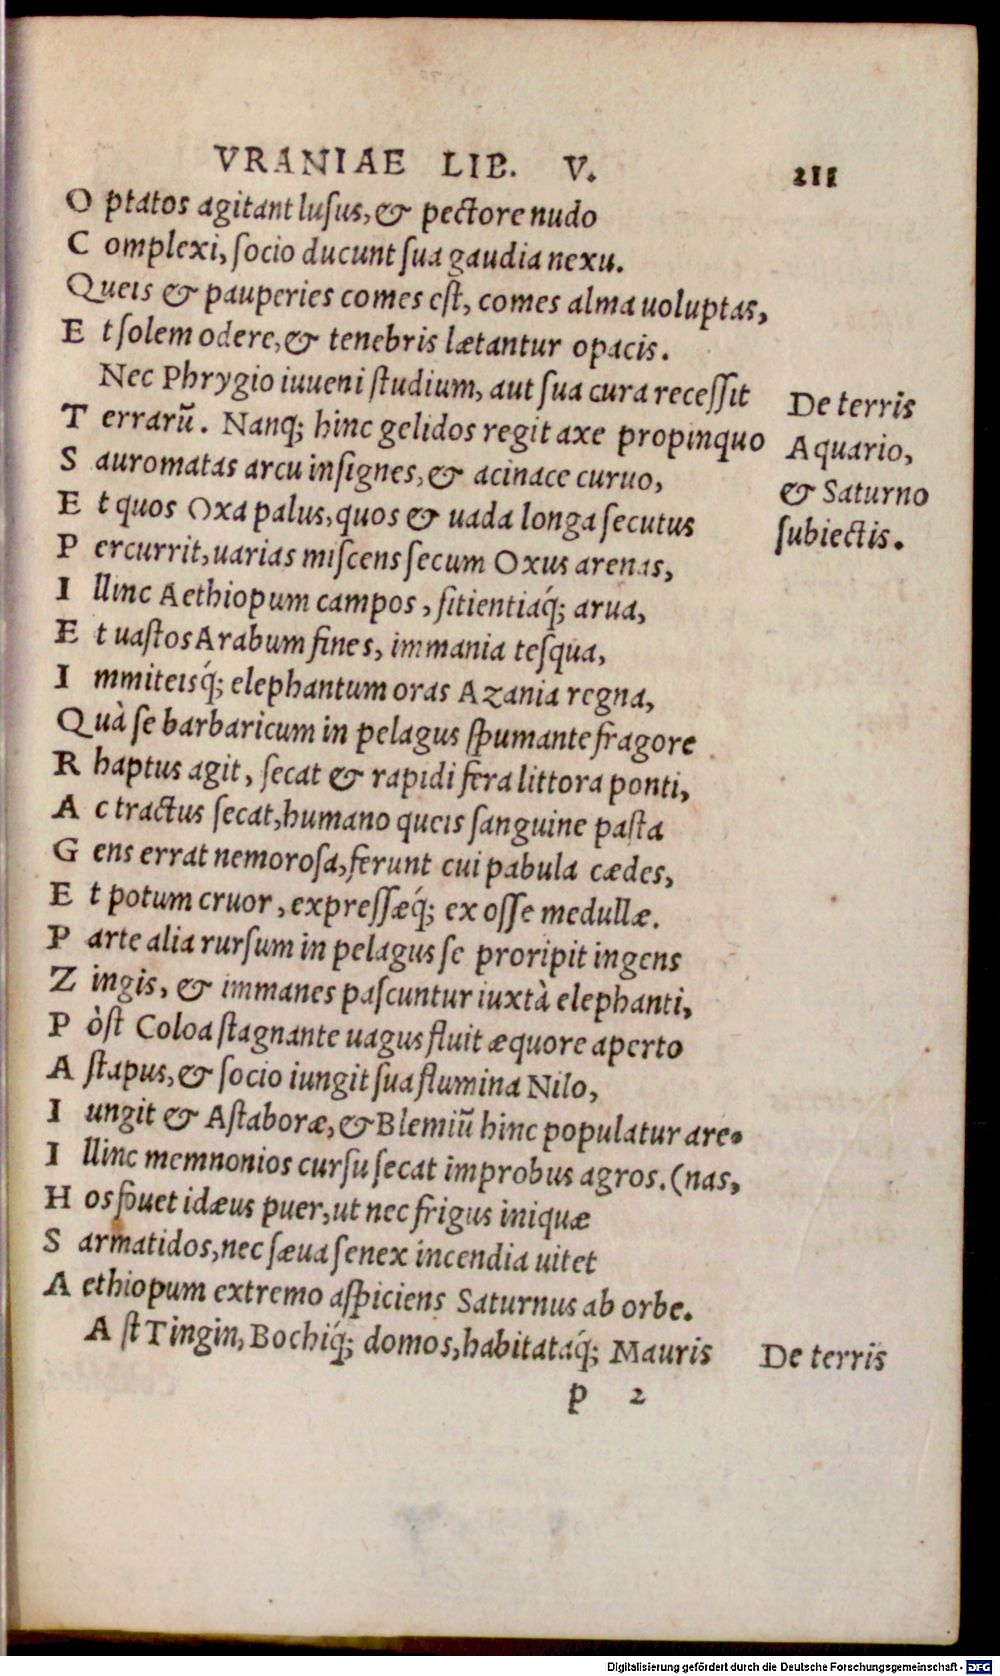 VRANIAE LIB. V. 211
O ptatos agitant lusus, & pectore nudo
C omplexi, socio ducunt sua gaudia nexu.
Queis & pauperies comes est, comes alma uoluptas,
E t solem odere, & tenebris lætantur opacis.
Nec Phrygio iuueni studium, aut sua cura recessit
De terris
T errarū. Nanq; hinc gelidos regit axe propinquo
Aquario,
S auromatas arcu insignes, & acinace curuo,
& Saturno
E t quos Oxa palus, quos & uada longa secutus
subiectis.
P ercurrit, uarias miscens secum Oxus arenas,
I llinc Aethiopum campos, sitientiaq́; arua,
E t uastos Arabum fines, immania tesqua,
I mmiteisq́; elephantum oras Azania regna,
Quà se barbaricum in pelagus spumante fragore
R haptus agit, secat & rapidi fera littora ponti,
A c tractus secat, humano queis sanguine pasta
G ens errat nemorosa, ferunt cui pabula cædes,
E t potum cruor, expressæq́; ex osse medullæ.
P arte alia rursum in pelagus se proripit ingens
Z ingis, & immanes pascuntur iuxtà elephanti,
P òst Coloa stagnante uagus fluit æquore aperto
A stapus, & socio iungit sua flumina Nilo,
I ungit & Astaboræ, & Blemiū hinc populatur are-
I llinc memnonios cursu secat improbus agros. (nas,
H os fouet idæus puer, ut nec frigus iniquæ
S armatidos, nec sæua senex incendia uitet
A ethiopum extremo aspiciens Saturnus ab orbe.
A st Tingin, Bochiq́; domos, habitataq́; Mauris
De terris
p 2
Digitalisierung gefördert durch die Deutsche Forschungsgemeinschaft - DFG